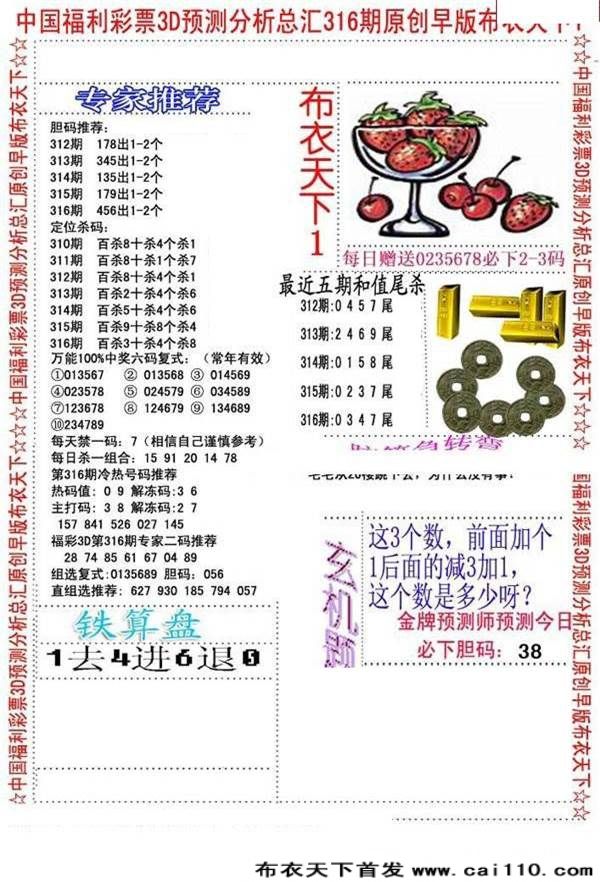 中国福利彩票3D预测分析总汇316期原创早版布衣天下
☆中国福利彩票3D预测分析总汇原创早版布衣天下☆☆☆中国福利彩票3D预测分析总汇原创早版布衣天下☆☆
专家推荐
胆码推荐:
312期 178出1-2个
313期 345出1-2个
314期 135出1-2个
315期 179出1-2个
316期 456出1-2个
定位杀码:
310期 百杀8十杀4个杀1
311期 百杀8十杀1个杀7
312期 百杀1十杀4个杀1
313期 百杀2十杀4个杀6
314期 百杀5十杀4个杀6
315期 百杀9十杀8个杀8
316期 百杀3十杀4个杀4
万能100%中奖六码复式:(常年有效)
①013567 ② 013568 ③ 014569
④023578 ⑤ 024579 ⑥ 034589
⑦123678 ⑧ 124679 ⑨ 134689
⑩234789
每天禁一码:7(相信自己谨慎参考)
每日杀一组合:15 91 20 14 78
第316期冷热号码推荐
热码值:0 9 解冻码:3 6
主打码:3 8 解冻码:2 7
157 841 526 027 145
福彩3D第316期专家二码推荐
28 74 85 61 67 04 89
组选复式:0135689 胆码:056
直组选推荐:627 930 185 794 057
铁算盘
1去4进6退5
布衣天下1
每日赠送0235678必下2-3码
最近五期和值尾杀
312期:0 4 5 7 尾
313期:2 4 6 9 尾
314期:0 1 5 8 尾
315期:0 2 3 7 尾
316期:0 3 4 7 尾
玄机题
这3个数,前面加个
1后面的减3加1,
这个数是多少呀?
金牌预测师预测今日
必下胆码: 38
☆☆中国福利彩票3D预测分析总汇原创早版布衣天下☆☆☆中国福利彩票3D预测分析总汇原创早版布衣天下☆☆
布衣天下首发 www.cai110.com